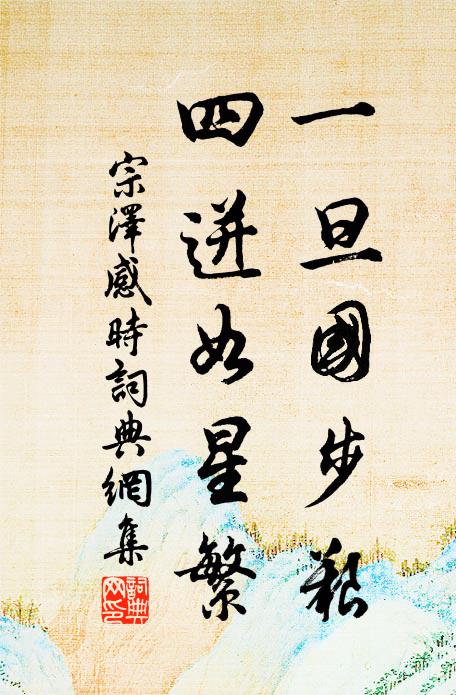 一旦國步艱
四迸如星繁
宗澤感時詞典網集
詞典網印